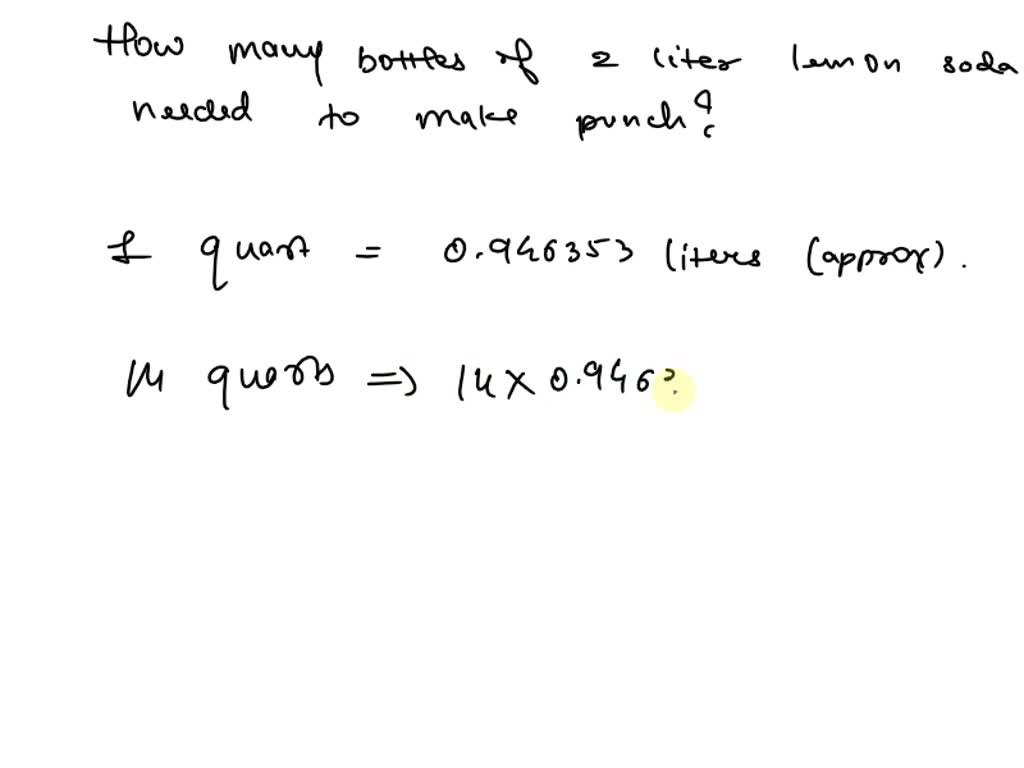 How many bottles of 2 liter lemon soda
needed to make punch?
1 quart = 0.946353 liters (approx).
14 quarts => 14 x 0.946